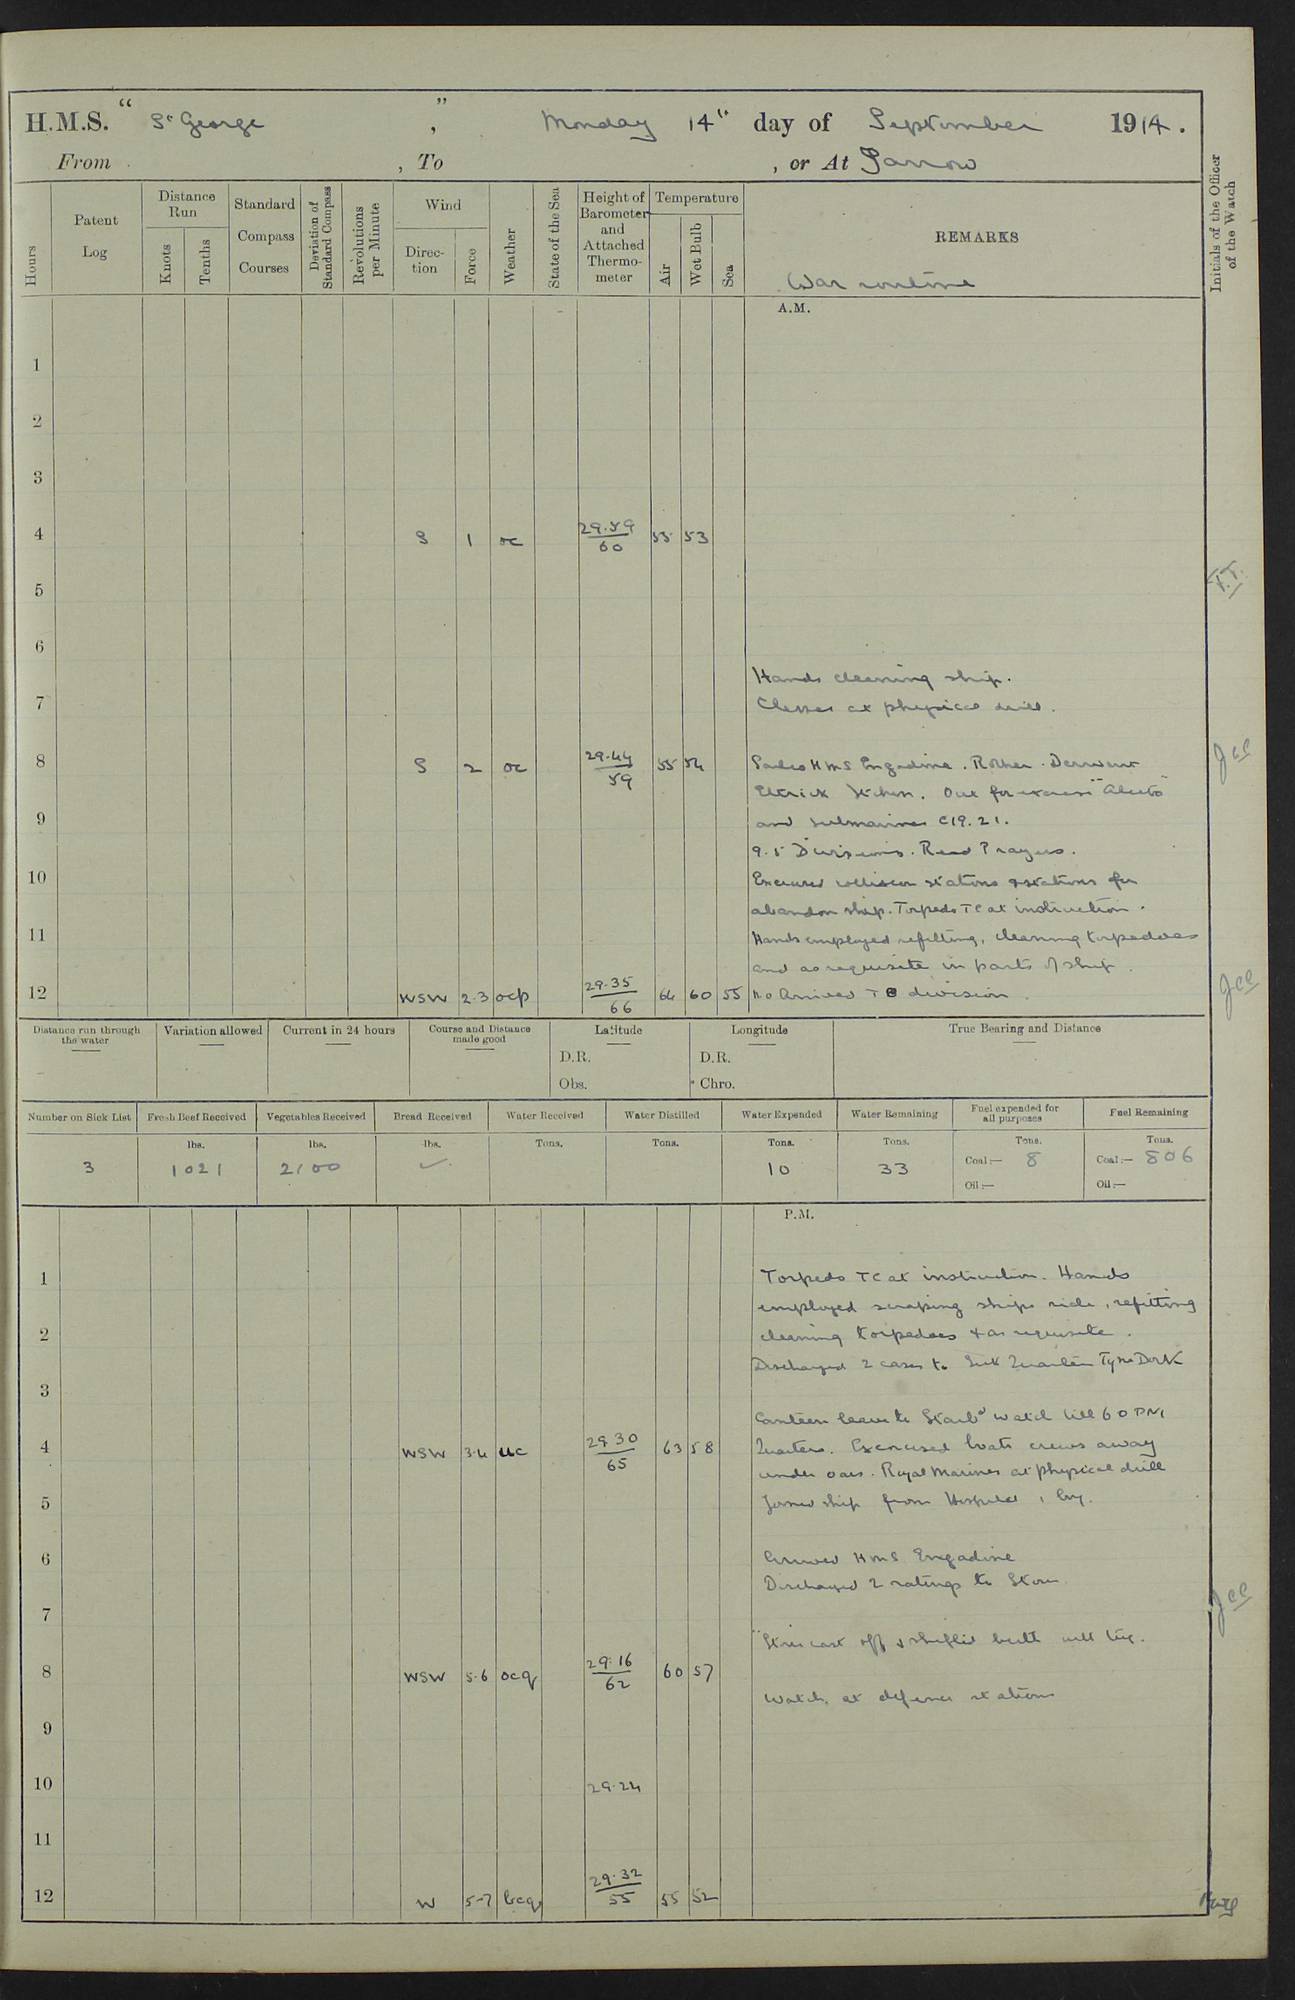 H.M.S. " St George " , Monday 14th day of September 1914.
From , To , or At Jarrow
Hours
Patent Log
Distance Run
Knots
Tenths
Standard Compass Courses
Deviation of Standard Compass
Revolutions per Minute
Wind
Direc-tion
Force
Weather
State of the Sea
Height of Barometer and Attached Thermo-meter
Temperature
Air
Wet Bulb
Sea
REMARKS
War routine
Initials of the Officer of the Watch
A.M.
1
2
3
4 S 1 oc 29.59/60 55 53
5
T.T.
6
Hands cleaning ship.
7
Classes at physical drill.
8 S 2 oc 29.44/59 55 54
Sailed HMS Engadine. Rother. Derwent
Ettrick Itchen. Out for exercise "Alecto"
9
and submarines C19. 21.
9.5 Divisions. Read Prayers.
10
Exercised collision stations & stations for
abandon ship. Torpedo TC at instruction.
11
Hands employed refitting, cleaning torpedoes
and as requisite in parts of ship.
12 WSW 2.3 ocp 29.35/66 64 60 55
Arrived TB division.
Distance run through the water
Variation allowed
Current in 24 hours
Course and Distance made good
Latitude
D.R.
Obs.
Longitude
D.R.
Chro.
True Bearing and Distance
Number on Sick List
Fresh Beef Received
Vegetables Received
Bread Received
Water Received
Water Distilled
Water Expended
Water Remaining
Fuel expended for all purposes
Fuel Remaining
lbs. lbs. lbs. Tons. Tons. Tons. Tons. Tons. Tons.
3 1021 2100 ✓ 10 33 Coal:— 8 Coal:— 806
Oil:— Oil:—
P.M.
1
Torpedo TC at instruction. Hands
employed scraping ships side, refitting
2
cleaning torpedoes & as requisite.
Discharged 2 cases to Sick Quarters Tyne Dock
3
Canteen leave to Starbd watch till 6 0 PM
4 WSW 3.4 uc 29.30/65 63 58
Quarters. Exercised boats crews away
under oars. Royal Marines at physical drill
5
Joined ship from Hospital 1 boy.
6
Arrived HMS Engadine
Discharged 2 ratings to Store
7
cast off & shifted berth with tug.
8 WSW 5.6 ocq 29.16/62 60 57
Watch at defence stations
9
10 29.24
11
12 W 5-7 bcq 29.32/55 55 52